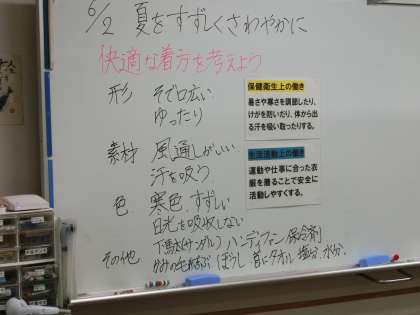 6/2 夏をすずしくさわやかに
快適な着方を考えよう
形 そで口広い
ゆったり
素材 風通しがいい
汗を吸う
色 寒色、すずしい
日光を吸収しない
その他 下駄(サンダル) ハンディファン 保冷剤
かみの毛結ぶ ぼうし 首にタオル 塩分、水分
保健衛生上の働き
暑さや寒さを調節したり、
けがを防いだり、体から出
る汗を吸い取ったりする。
生活活動上の働き
運動や仕事に合った衣
服を着ることで安全に
活動しやすくする。